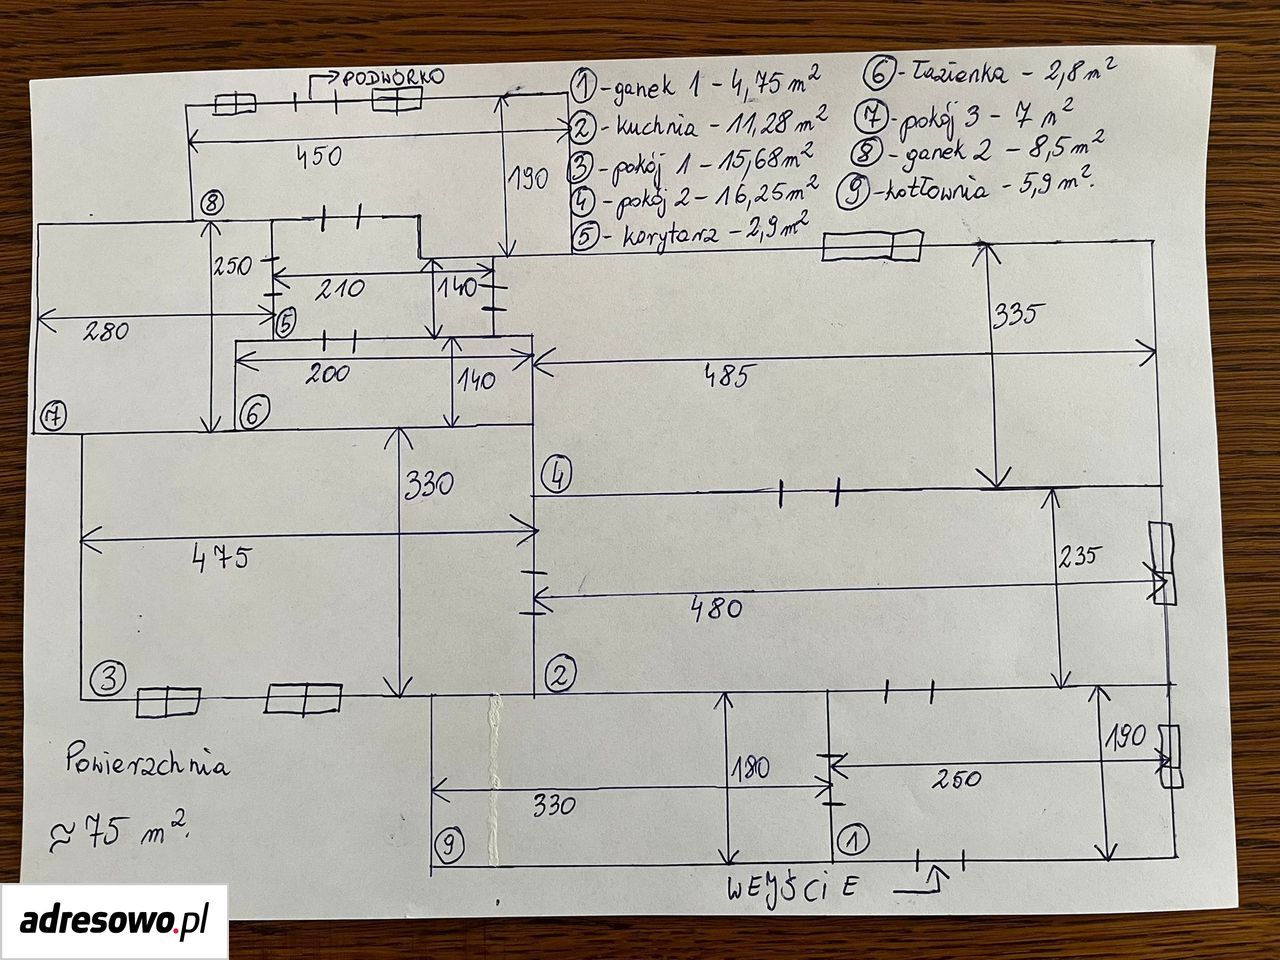 PODWÓRKO
① - ganek 1 - 4,75 m²
② - kuchnia - 11,28 m²
③ - pokój 1 - 15,68 m²
④ - pokój 2 - 16,25 m²
⑤ - korytarz - 2,9 m²
⑥ - łazienka - 2,8 m²
⑦ - pokój 3 - 7 m²
⑧ - ganek 2 - 8,5 m²
⑨ - kotłownia - 5,9 m².
450
190
⑧
250
210
140
280
⑤
335
200
140
485
⑦
⑥
330
④
475
235
480
③
②
Powierzchnia
≈ 75 m².
180
190
330
250
⑨
①
WEJŚCIE
adresowo.pl